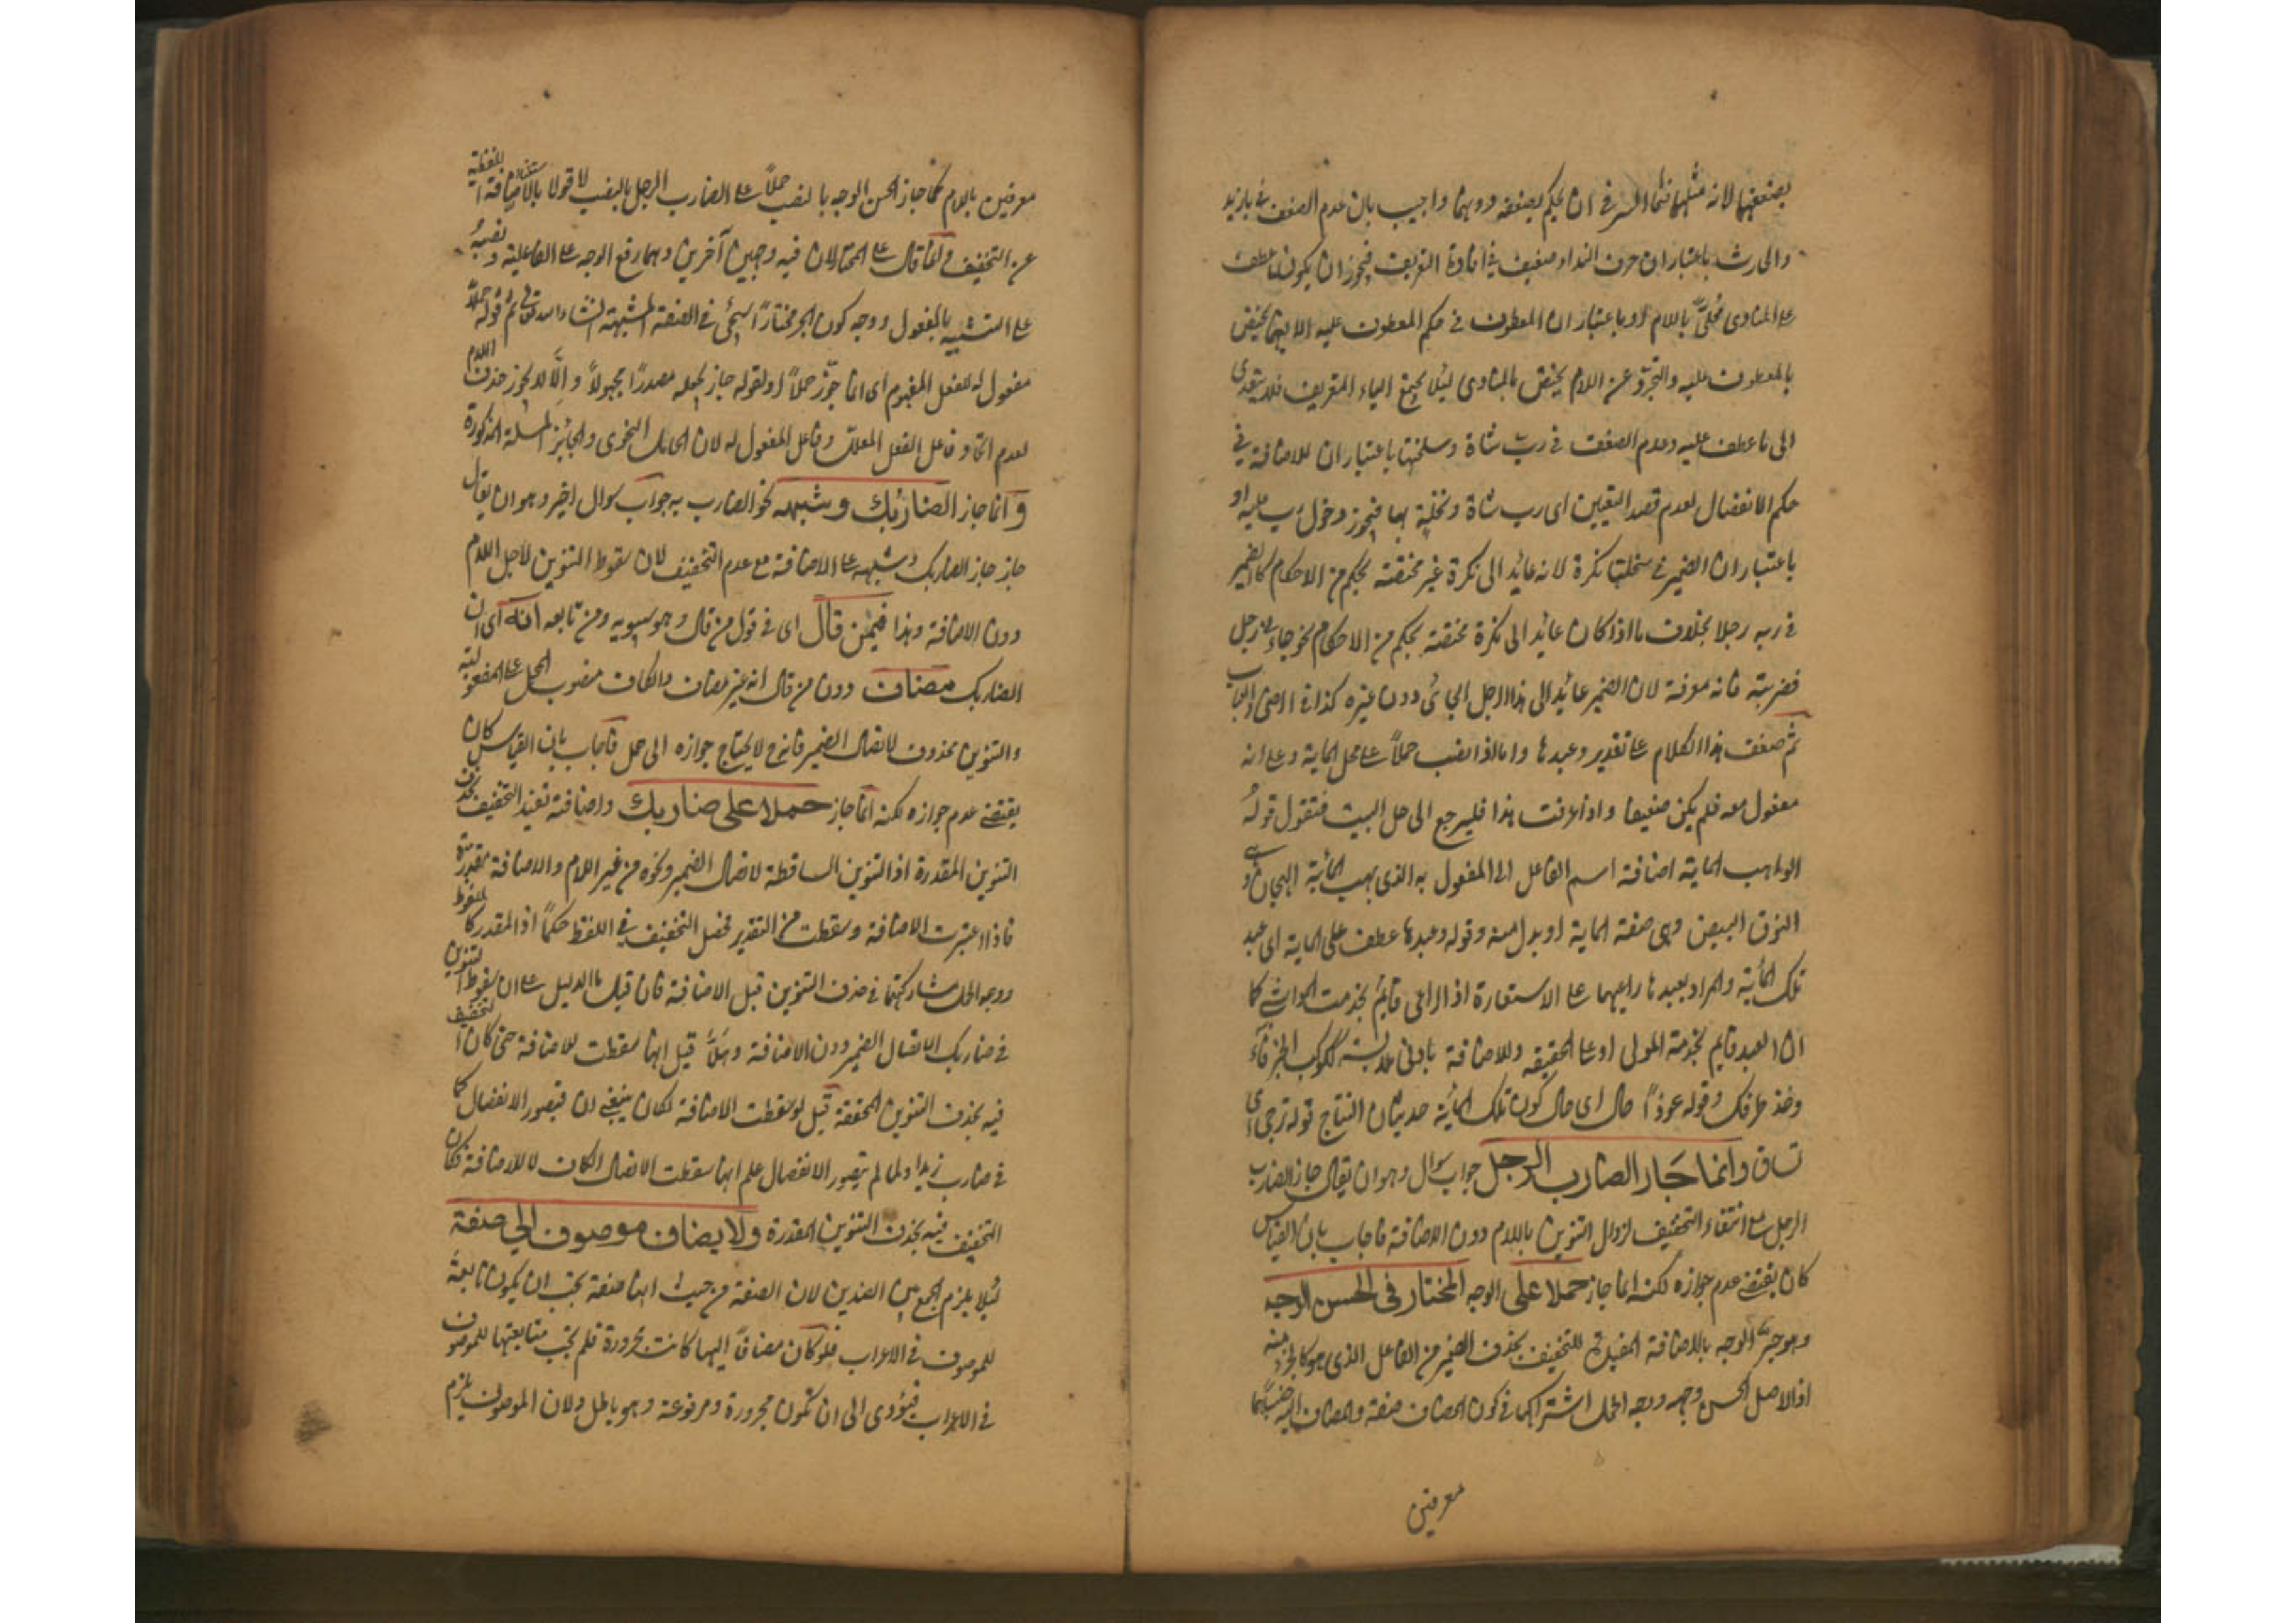 بضعفها لانه مثلها فما السر في ان يحكم بضعفه دونها واجيب بان عدم الضعف في يا زيد
والحارث باعتبار ان حرف النداء ضعيف في افادة التعريف فيجوز ان يكون ما عطف
على المنادى محلّىً باللام او باعتبار ان المعطوف في حكم المعطوف عليه الا فيما يختص
بالمعطوف عليه والتجرد عن اللام يختص بالمنادى ليلا يجتمع التعريف فلا يتعدى
الى ما عطف عليه وعدم الضعف في رب شاة وسخلتها باعتبار ان للاضافة في
حكم الانفصال لعدم قصد التعيين اى رب شاة وسخلة بها فيجوز دخول رب عليه او
باعتبار ان الضمير في سخلتها نكرة لانه عائد الى نكرة غير مختصة بحكم من الاحكام كالضمير
في ربه رجلا بخلاف ما اذا كان عائد الى نكرة مختصة بحكم من الاحكام نحو جاءنى رجل
فضربته فانه معرفة لان الضمير عائد الى هذا الرجل الجائى دون غيره كذا في الرضى
ثم ضعف هذا الكلام على تقدير وعبدها واما اذا نصب حملاً على محل الماية وعلى انه
مفعول معه فلم يكن ضعيفا واذا عرفت هذا فليرجع الى حل البيت فنقول قوله
الواهب الماية اضافة اسم الفاعل الى المفعول به الذى يهب المائة الهجان
النوق البيض وهى صفة الماية او بدل منه وقوله وعبدها عطف على الماية اى عبد
تلك المائة والمراد بعبدها راعيها على الاستعارة اذ الراعى قايم بخدمت المواشى كما
ان العبد قايم بخدمة المولى او على الحقيقة والاضافة بادنى ملابسة ككوكب الخرقاء
وخذ طرفك وقوله عوذاً حال اى حال كون تلك المائة حديثات النتاج قوله تزجى اى
تساق وانما جاز الضارب الرجل جواب سوال وهو ان يقال جاز الضارب
الرجل مع انتفاء التخفيف لزوال التنوين باللام دون الاضافة فاجاب بان القياس
كان يقتضى عدم جوازه لكنه انما جاز حملا على الوجه المختار فى الحسن الوجه
وهو جر الوجه بالاضافة المفيدة للتخفيف بحذف الضمير من الفاعل الذى هو كالجزء منه
اذ الاصل الحسن وجهه ووجه الحمل اشتراكهما في كون المضاف صفة والمضاف اليه جنسا
معرفين
معرفين باللام كما جاز الحسن الوجه بالنصب حملاً على الضارب الرجل بالنصب لا قولا بالاضافة اللفظية
عن التخفيف وانما قال على المختار لان فيه وجهين آخرين وهما رفع الوجه على الفاعلية ونصبه
على التشبيه بالمفعول ووجه كون الجر مختاراً سيجئ في الصفة المشبهة انشاء الله تعالى ثم قوله حملاً
مفعول له للفعل المفهوم اى انما جوّز حملاً او لقوله جاز بجعله مصدرًا مجهولاً والّا لا يجوز حذف اللام
لعدم اتحاد فاعل الفعل المعلل وفاعل المفعول له لان الحامل النحوى والجائز المسئلة المذكورة
وانما جاز الضاربك وشبهه نحو الضارب به جواب سوال اخر وهو ان يقال
جاز جاز الضاربك وشبهه على الاضافة مع عدم التخفيف لان سقوط التنوين لاجل اللام
دون الاضافة وهذا فيمن قال اى في قول من قال وهو سيبويه ومن تابعه انه اى ان
الضاربك مضاف دون من قال انه غير مضاف والكاف منصوب المحل على المفعولية
والتنوين محذوف لاتصال الضمير فانه ح لا يحتاج جوازه الى حمل فاجاب بان القياس كان
يقتضى عدم جوازه لكنه انما جاز حملا على ضاربك واضافة تفيد التخفيف بحذف
التنوين المقدرة اذ التنوين الساقطة لاتصال الضمير ونحوه من غير اللام والاضافة مقدرة
فاذا اعتبرت الاضافة وسقطت من التقدير فحصل التخفيف في اللفظ حكماً اذ المقدر كالملفوظ
ووجه الحمل مشاركتهما في حذف التنوين قبل الاضافة فان قيل ما الدليل على ان سقوط التنوين
في ضاربك لاتصال الضمير دون الاضافة وهلّا قيل انها سقطت للاضافة حتى كان التخفيف
فيه بحذف التنوين المحققة قيل لو سقطت الاضافة لكان ينبغى ان فيصور الانفصال كما
في ضارب زيدا ولما لم يتصور الانفصال علم انها سقطت لاتصال الكاف لا للاضافة فكان
التخفيف فيه بحذف التنوين المقدرة ولا يضاف موصوف الى صفة
ليلا يلزم الجمع بين الضدين لان الصفة من حيث انها صفة يجب ان يكون تابعة
للموصوف في الاعراب فلو كان مضافاً اليها كانت مجرورة فلم يجب متابعتها للموصوف
في الاعراب فيؤدى الى ان تكون مجرورة ومرفوعة وهو باطل ولان الموصوف يلزم